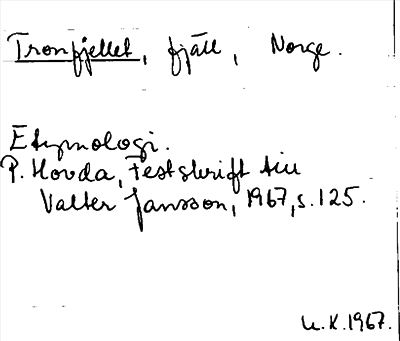 Tronfjellet, fjäll, Norge.
Etymologi.
P. Hovda, Festskrift till
Valter Jansson, 1967, s. 125.
U.K. 1967.